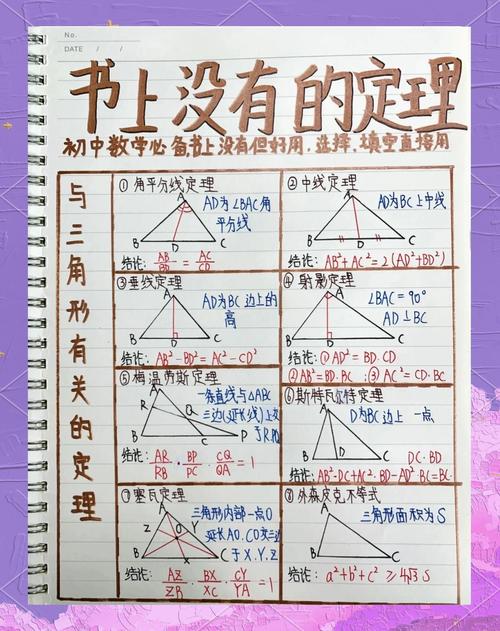 No.
DATE / /
书上没有的定理
初中数学必备书上没有但好用,选择,填空直接用
与三角形有关的定理
① 角平分线定理
A
AD为∠BAC角
平分线
B D C
结论: AB/BD = AC/CD
② 中线定理
A
AD为BC上中线
B D C
结论: AB²+AC²=2(AD²+BD²)
③ 垂线定理
A
AD为BC边上的
高
B D C
结论: AB²-BD²=AC²-CD²
④ 射影定理
A
∠BAC=90°
AD⊥BC
B D C
结论: ①AD²=BD·CD
②AB²=BD·BC ;③AC²=CD·BC
⑤ 梅涅劳斯定理
A
一条直线与△ABC
R Q
三边(延长线)上
B C P
结论: AR/RB · BP/PC · CQ/QA = 1
⑥ 斯特瓦尔特定理
A
D为BC边上一点
B D C
DC·BD
结论: AB²·DC+AC²·BD-AD²·BC=BC·
⑦ 塞瓦定理
A
三角形内部一点O
Z O Y
延长AO.CO交三边
B X C
于X.Y.Z
结论: AZ/ZB · BX/XC · CY/YA = 1
⑧ 外森皮克不等式
A
三角形面积为S
B C
结论: a²+b²+c²≥4√3 S